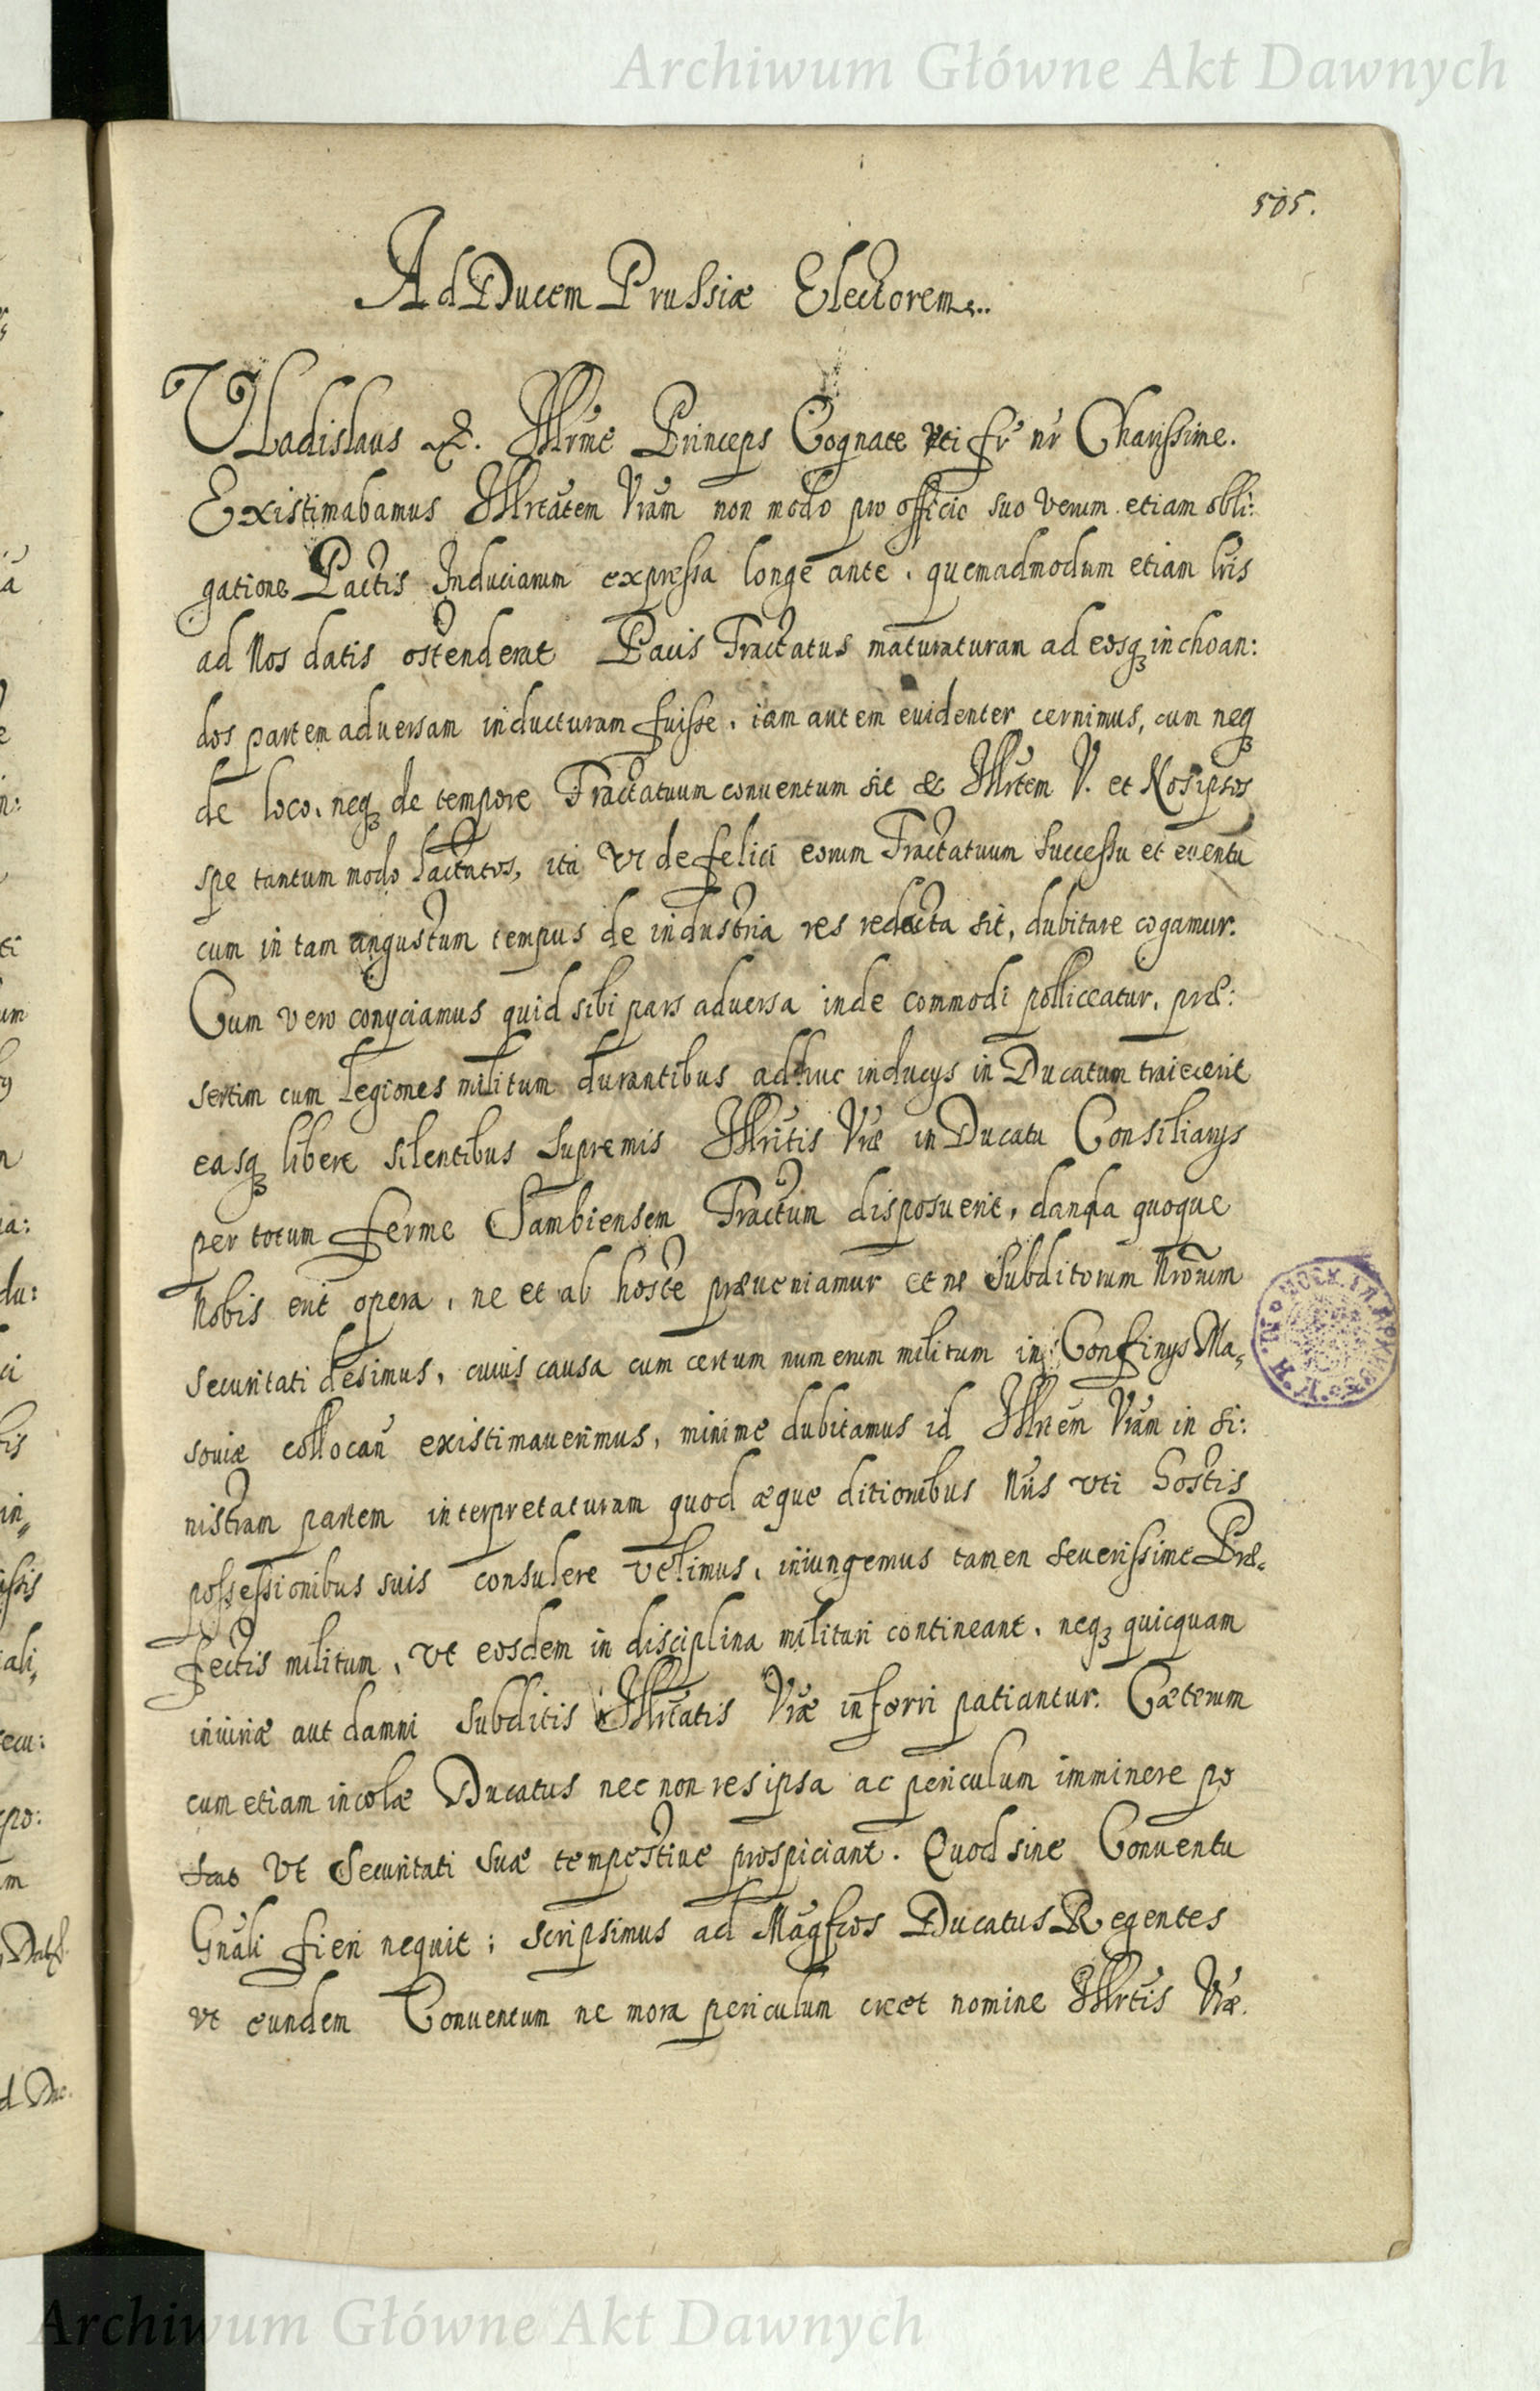 Archiwum Główne Akt Dawnych
505.
Ad Ducem Prussiæ Electorem
Vladislaus &. Illrme Princeps Cognate uti fr nr Charissime.
Existimabamus Illrtatem Vram non modo pro officio suo verum etiam obli:
gatione Pactis Induciarum expressa longe ante, quemadmodum etiam lris
ad Nos datis ostenderat Pacis Tractatus maturaturam ad eosq inchoan:
dos partem adversam inducturam fuisse, iam autem euidenter cernimus, cum neq
de loco, neq de tempore Tractatuum conuentum sit & Illrtem V. et Nos ipsos
spe tantum modo lactatos, ita vt de felici eorum Tractatuum Successu et euentu
cum in tam angustum tempus de industria res redacta sit, dubitare cogamur.
Cum vero conyciamus quid sibi pars aduersa inde commodi polliceatur, præ:
sertim cum Legiones militum durantibus adhuc inducys in Ducatum traiecerit
easq libere silentibus Supremis Illrtis Vræ in Ducatu Consiliarys
per totum ferme Sambiensem Tractum disposuerit, danda quoque
Nobis erit opera, ne et ab hoste præueniamur et ne Subditorum Nrorum
Securitati desimus, cuius causa cum certum numerum militum in Confinys Ma„
souiæ collocari existimauerimus, minime dubitamus id Illrtem Vram in si:
nistram partem interpretaturam quod æque ditionibus Nris vti hostis
possessionibus suis consulere velimus, iniungemus tamen seuerissime Præ„
fectis militum, vt eosdem in disciplina militari contineant, neq quicquam
iniuriæ aut damni subditis Illrtatis Vræ inferri patiantur. Cæterum
cum etiam incolæ Ducatus nec non res ipsa ac periculum imminere po
scat vt Securitati Suæ tempestiue prospiciant. Quod sine Conuentu
Gnali fieri nequit; scripsimus ad Magfcos Ducatus Regentes
vt eundem Conuentum ne mora periculum creet nomine Illrtis Vræ.
Archiwum Główne Akt Dawnych